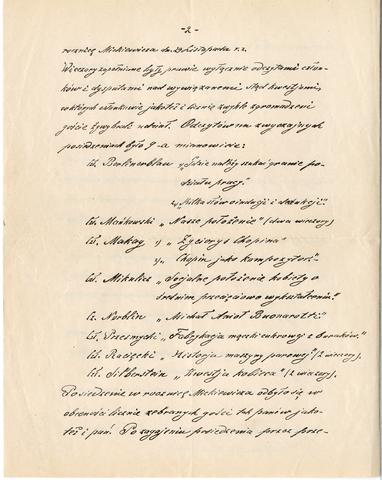 -2-
rocznicę Mickiewicza dn. 29 Listopada r.z.
Wieczory zapełnione były prawie wyłącznie odczytami człon-
ków i dysputami nad wywiązanemi stąd kwestjami,
w których członkowie jakoteż i licznie zwykle zgromadzeni
goście żywy brali udział. Odczytów na zwyczajnych
posiedzeniach było 9 a mianowicie:
Cz. Berlinerblau „Gdzie należy szukać granic po-
działu pracy"
„Kilka słów o indukcji i dedukcji"
Cz. Mańkowski „Nasze położenie" (dwa wieczory)
Cz. Makay 1) „Życiorys Chopina"
2) „Chopin jako kompozytor"
Cz. Mikulicz „Socjalne położenie kobiety o
średnim przeciętnie wykształceniu"
Cz. Norblin „Michał Anioł Buonarotti"
Cz. Przesmycki „Fabrykacja mączki cukrowej z buraków"
Cz. Radzęcki „Historja maszyny parowej" (2 wieczory)
Cz. Silberstein „Kwestja kobieca" (2 wieczory).
Posiedzenie w rocznicę Mickiewicza odbyło się w
obecności licznie zebranych gości tak panów jako-
też i pań. Po zagajeniu posiedzenia przez prze-